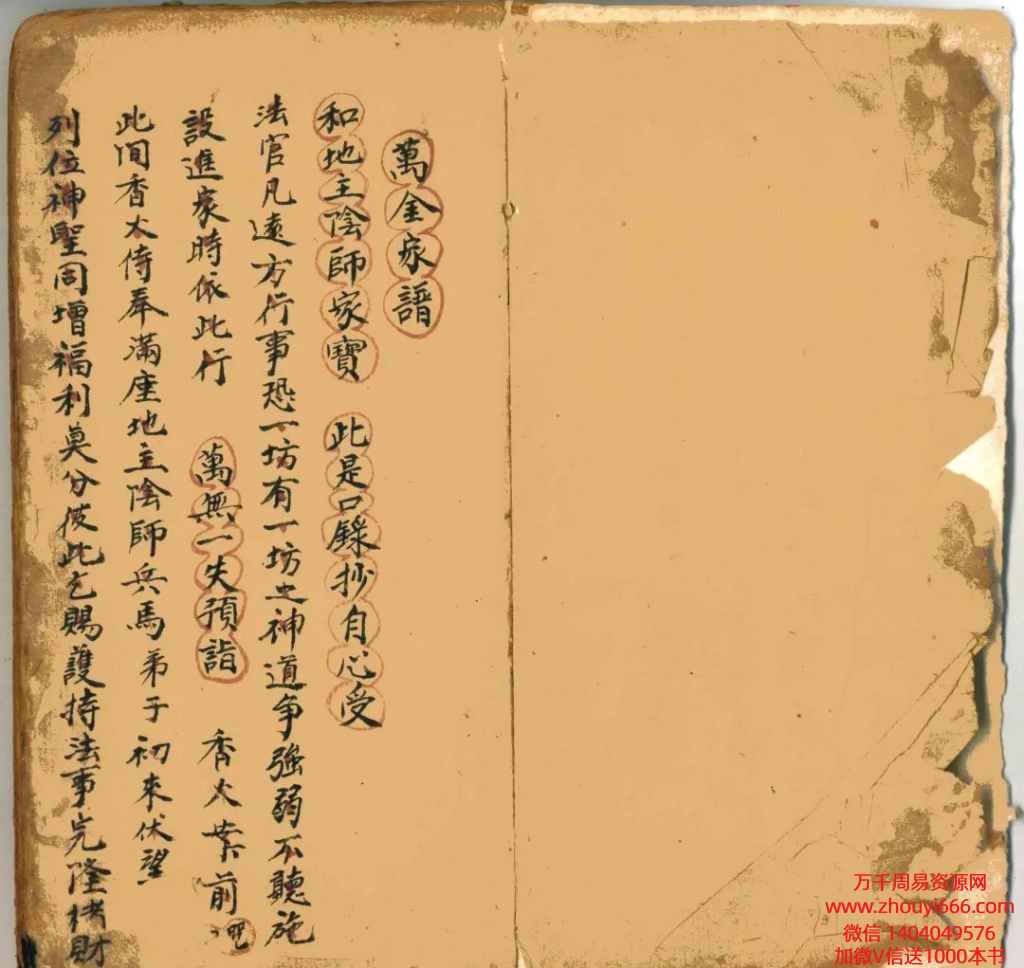 萬金家譜
和地主陰師家寶 此是口錄抄自心受
法官凡遠方行事恐一坊有一坊之神道争強弱不聽施
設進家時依此行 萬無一失預詣 香火案前
此间香火侍奉滿座地主陰師兵馬弟子初來伏望
列位神聖同增福利莫分彼此乞賜護持法事完隆財
万千周易资源网
www.zhouyi666.com
微信 1404049576
加微V信送1000本书